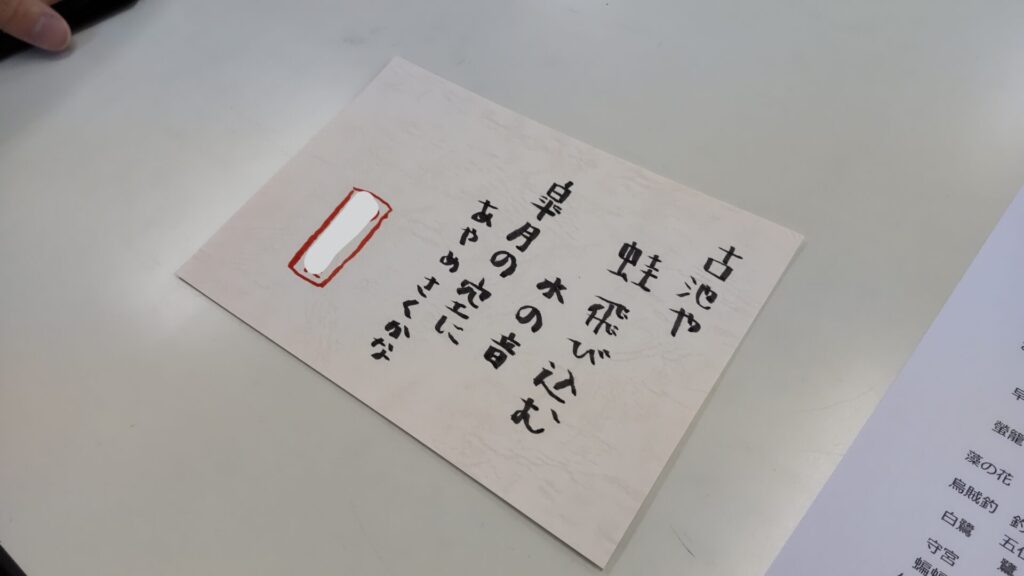 古池や
蛙飛び込む
水の音
皐月の空に
あやめさくかな
早
螢籠
藻の花
烏賊釣 釣
白鷺 五
守宮 鷺